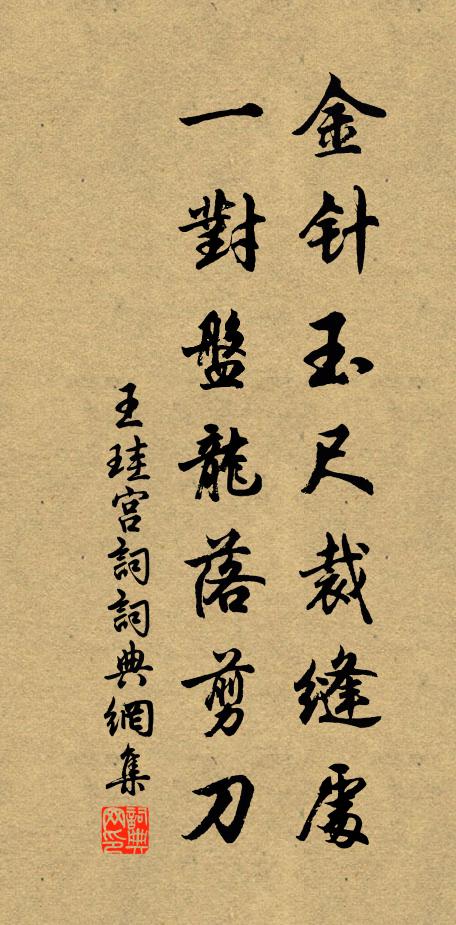 金针玉尺裁缝處
一對盤龍落剪刀
王珪宫詞詞典網集
詞典網印